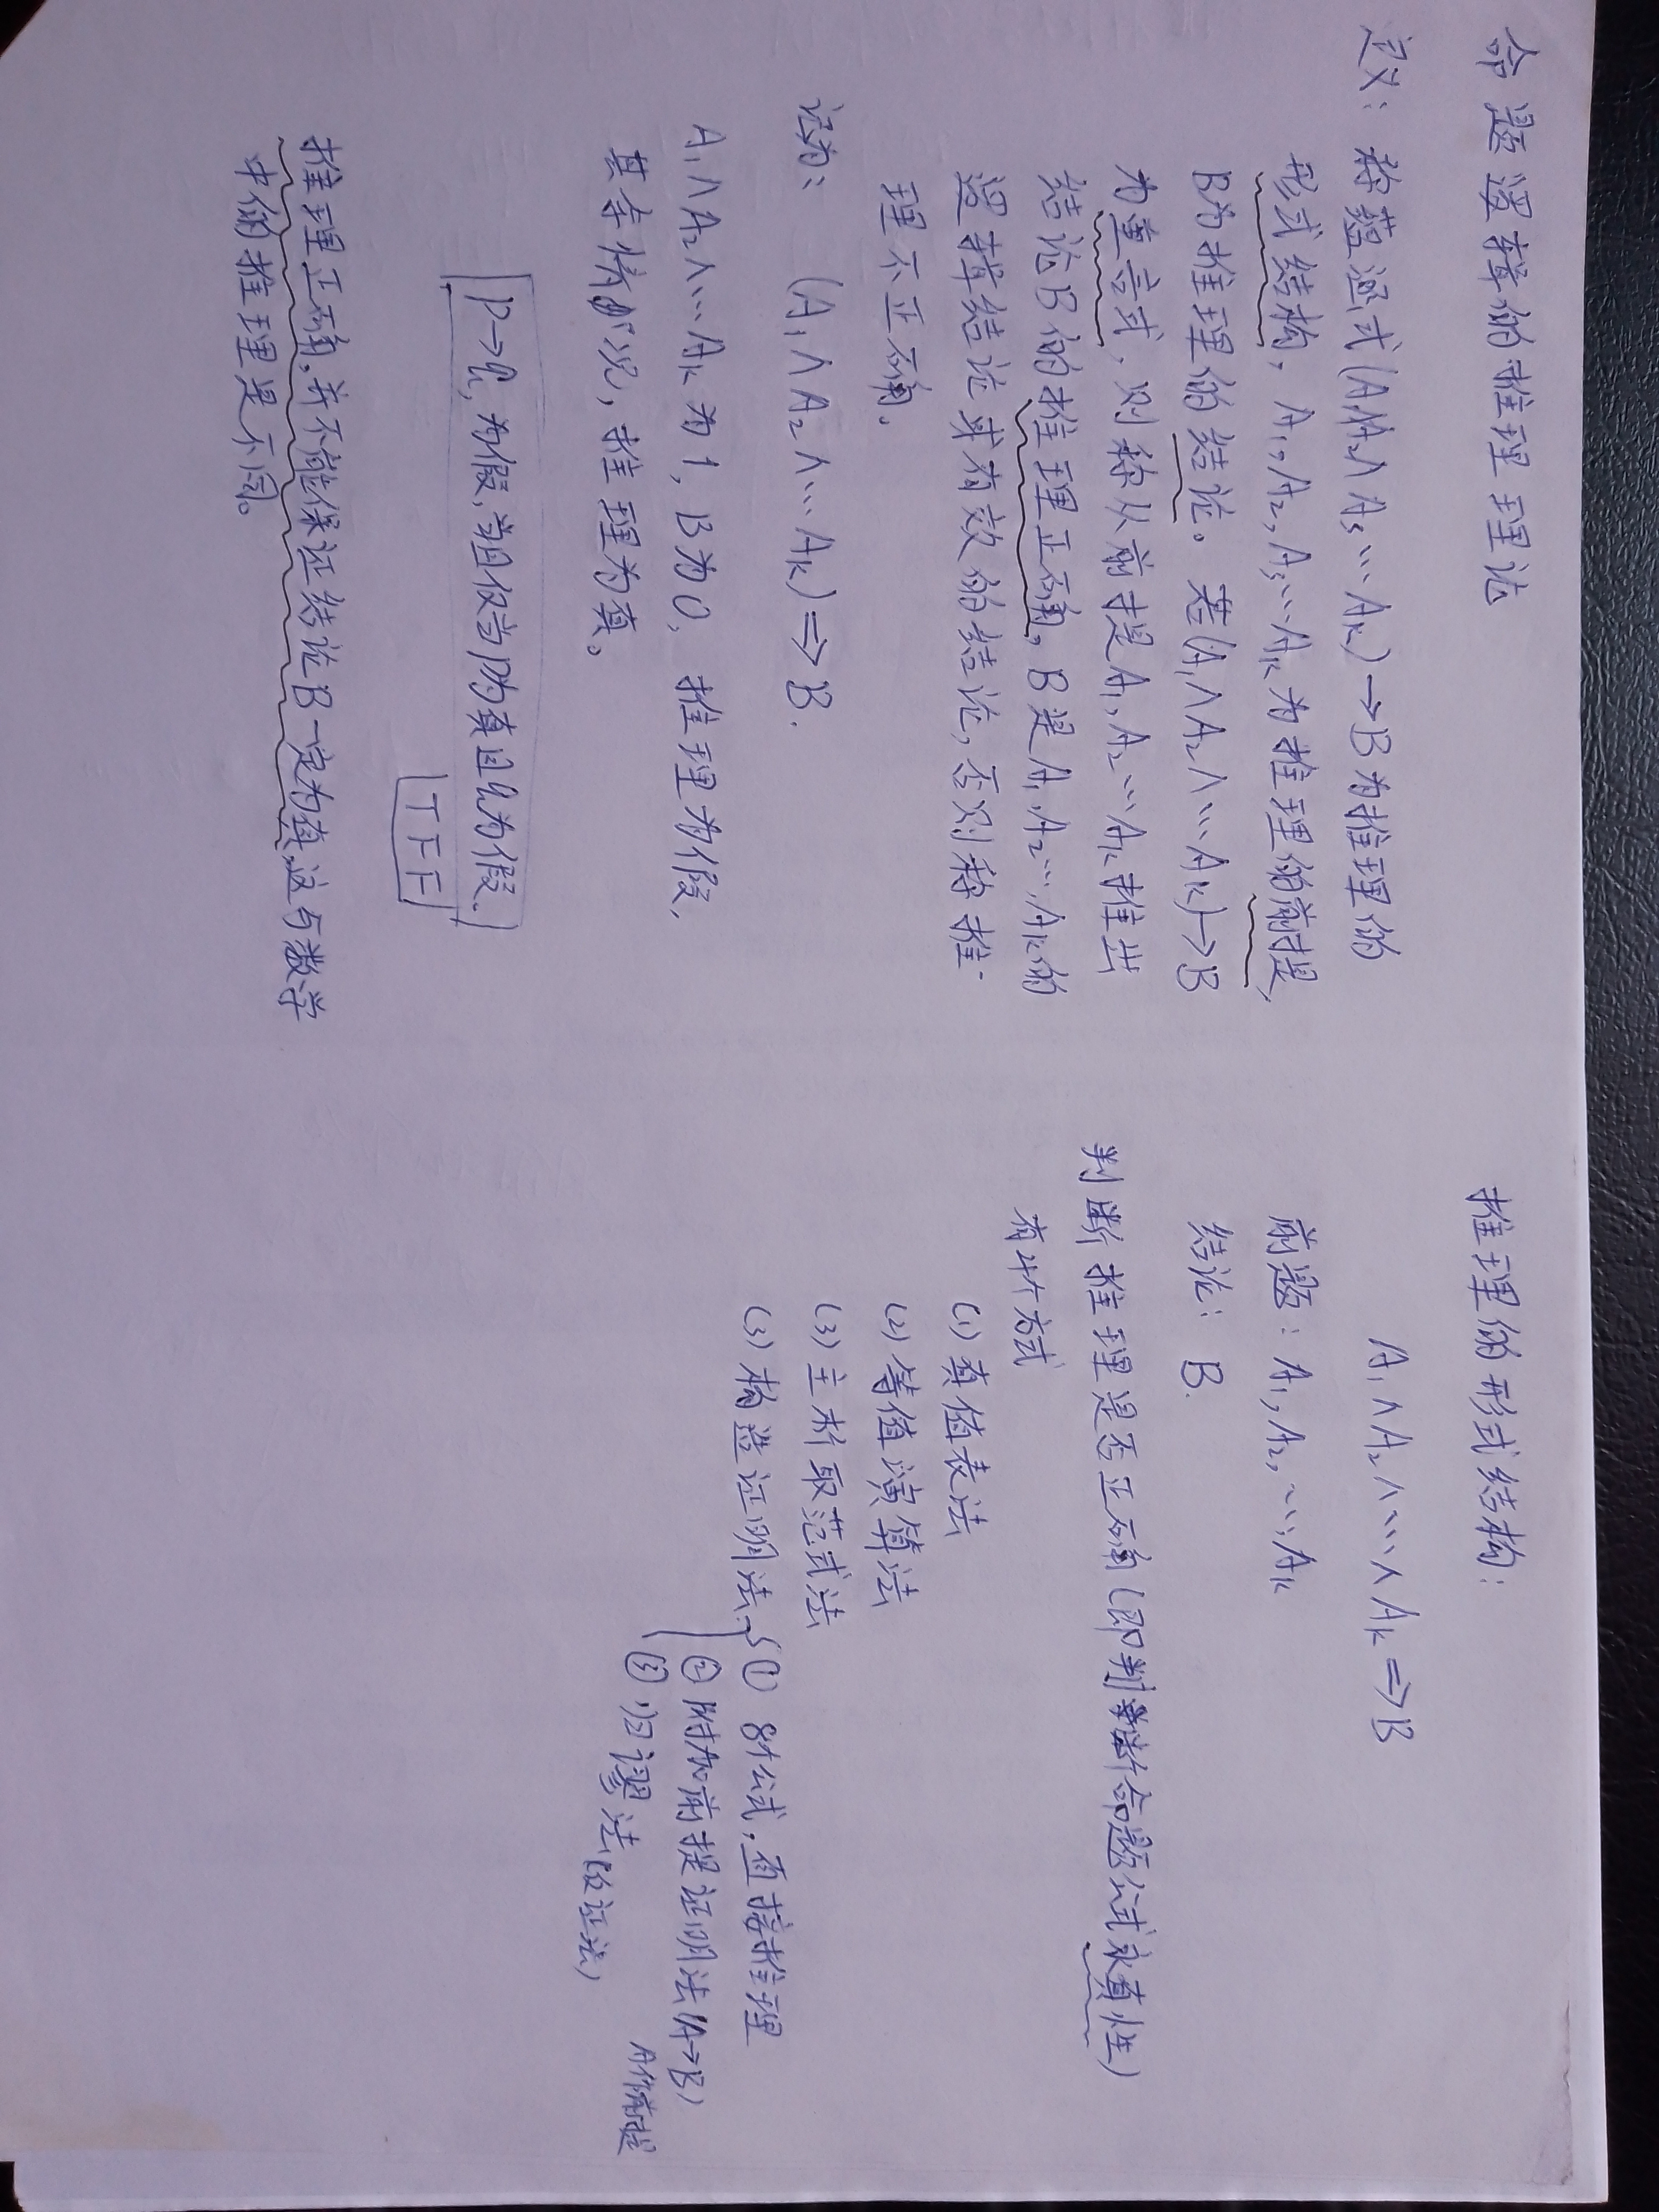 命题逻辑的推理理论
定义：称蕴涵式(A₁∧A₂∧A₃…Aₖ)→B为推理的
形式结构，A₁,A₂,A₃…Aₖ为推理的前提，
B为推理的结论。若(A₁∧A₂∧…Aₖ)→B
为重言式，则称从前提A₁,A₂…Aₖ推出
结论B的推理正确，B是A₁,A₂…,Aₖ的
逻辑结论或有效的结论，否则称推
理不正确。
记为：(A₁∧A₂∧…Aₖ)⇒B.
A₁∧A₂∧…Aₖ为1，B为0，推理为假，
其余情况，推理为真。
p→q，为假，当且仅当p为真且q为假.
TFF
推理正确，并不能保证结论B一定为真，这与数学
中的推理是不同。
推理的形式结构：
A₁∧A₂∧…∧Aₖ⇒B
前题：A₁,A₂,…,Aₖ
结论：B.
判断推理是否正确(即判断命题公式永真性)
有4个方式
(1)真值表法
(2)等值演算法
(3)主析取范式法
(3)构造证明法 ① 8个公式，直接推理
② 附加前提证明法(A→B)
A作前提
③ 归谬法(反证法)